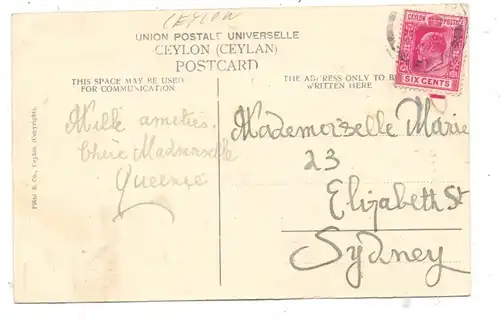 CEYLON
UNION POSTALE UNIVERSELLE
CEYLON (CEYLAN)
POSTCARD
THIS SPACE MAY BE USED
FOR COMMUNICATION.
THE ADDRESS ONLY TO BE
WRITTEN HERE
CEYLON POSTAGE
SIX CENTS
Mille amitiés
Chère Mademoiselle
Mademoiselle Marie
23
Elizabeth St
Sydney
Plâté & Co., Ceylon (Copyright).